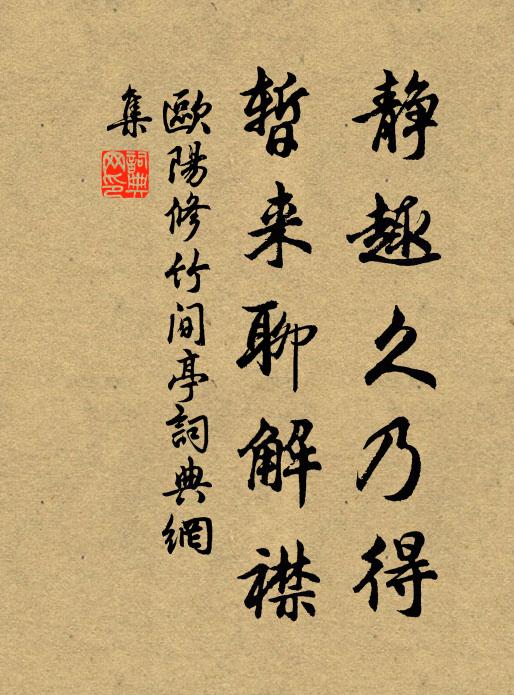 静趣久乃得
暂来聊解襟
歐陽修竹间亭詞典網
集
詞典
网印